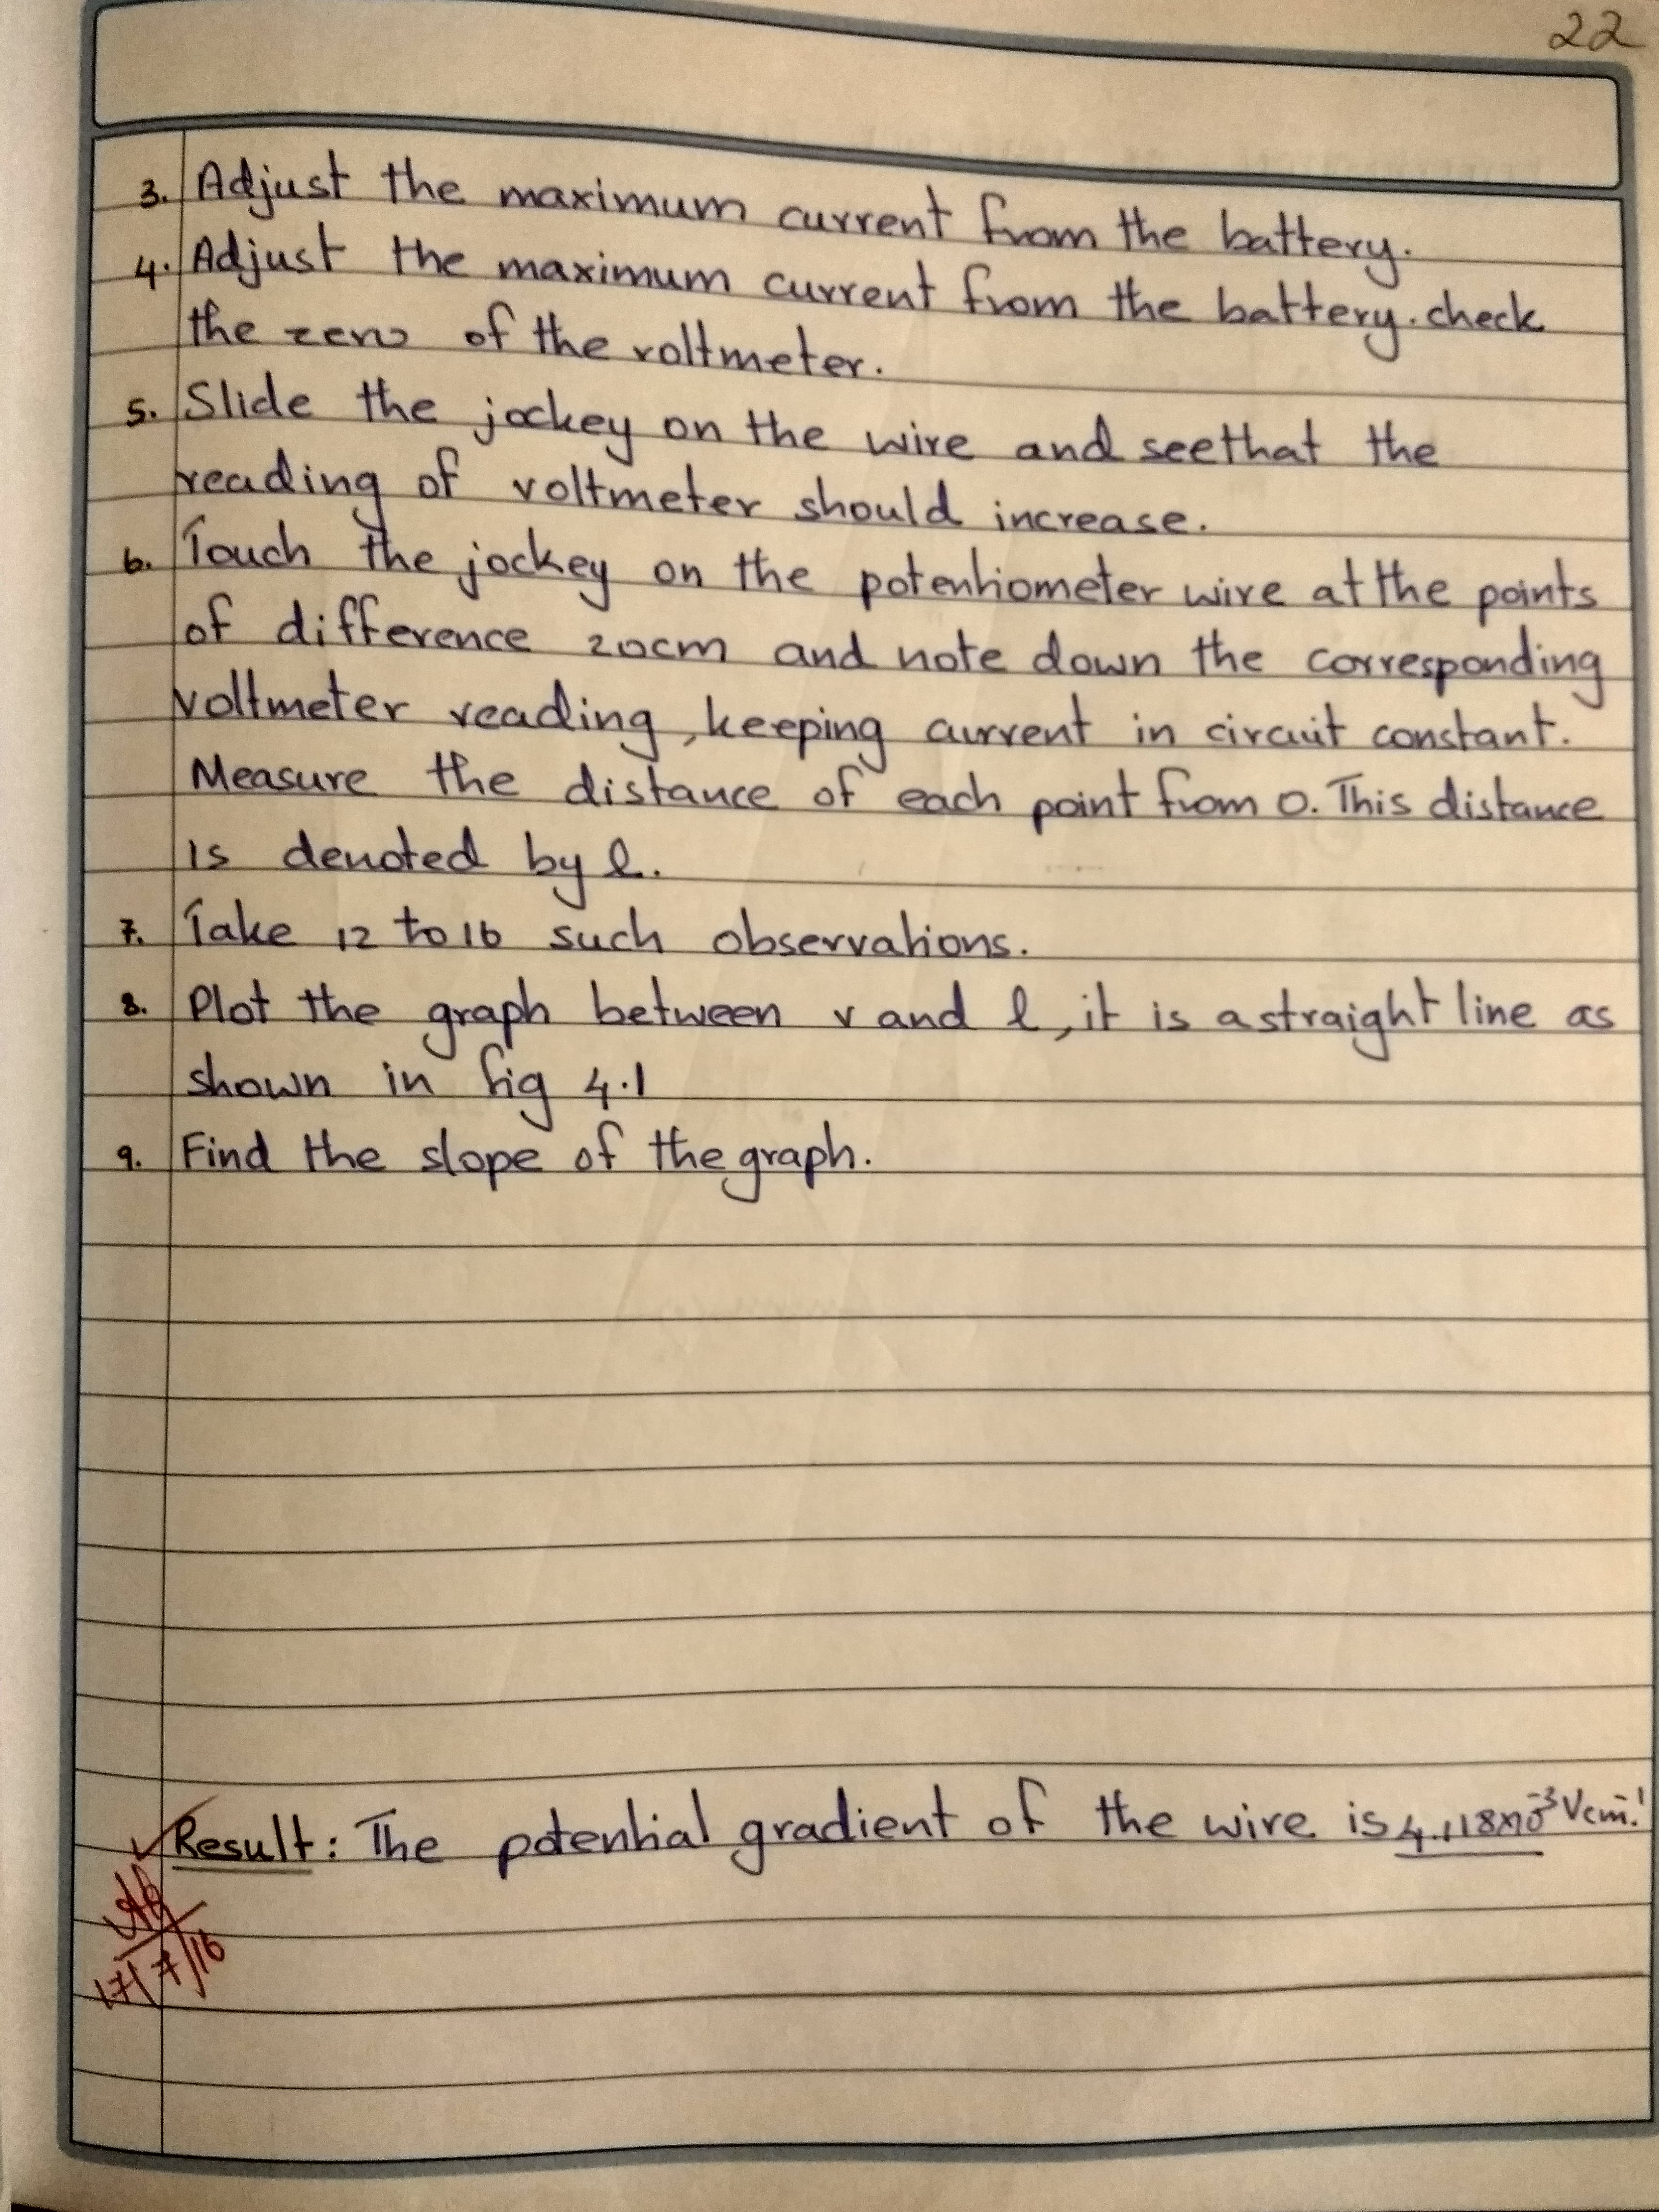 22
3. Adjust the maximum current from the battery.
4. Adjust the maximum current from the battery. check
the zero of the voltmeter.
5. Slide the jockey on the wire and seethat the
reading of voltmeter should increase.
6. Touch the jockey on the potentiometer wire at the points
of difference 20cm and note down the corresponding
voltmeter reading, keeping current in circuit constant.
Measure the distance of each point from 0. This distance
is denoted by l.
7. Take 12 to 16 such observations.
8. Plot the graph between v and l, it is a straight line as
shown in fig 4.1
9. Find the slope of the graph.
Result: The potential gradient of the wire is 4.118x10⁻³ Vcm⁻¹.
17/7/16